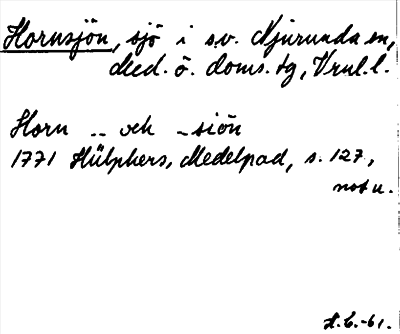 Hornsjön, sjö i s.v. Njurunda sn,
Med. ö. doms. tg, Vnl. l.
Horn .. och -siön
1771 Hülphers, Medelpad, s. 127,
not u.
H.C.-61.